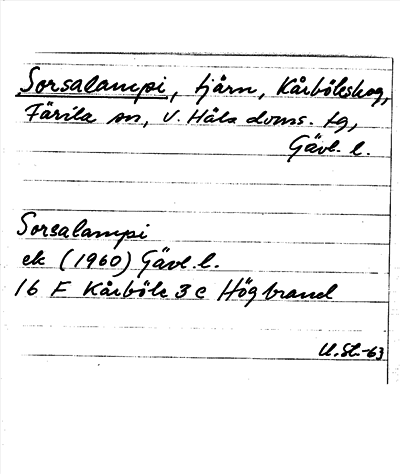 Sorsalampi, tjärn, Kårböleskog,
Färila sn, V. Häls doms. tg,
Gävl. l.
Sorsalampi
ek (1960) Gävl. l.
16 F Kårböle 3 c Högbrand
U.St.-63